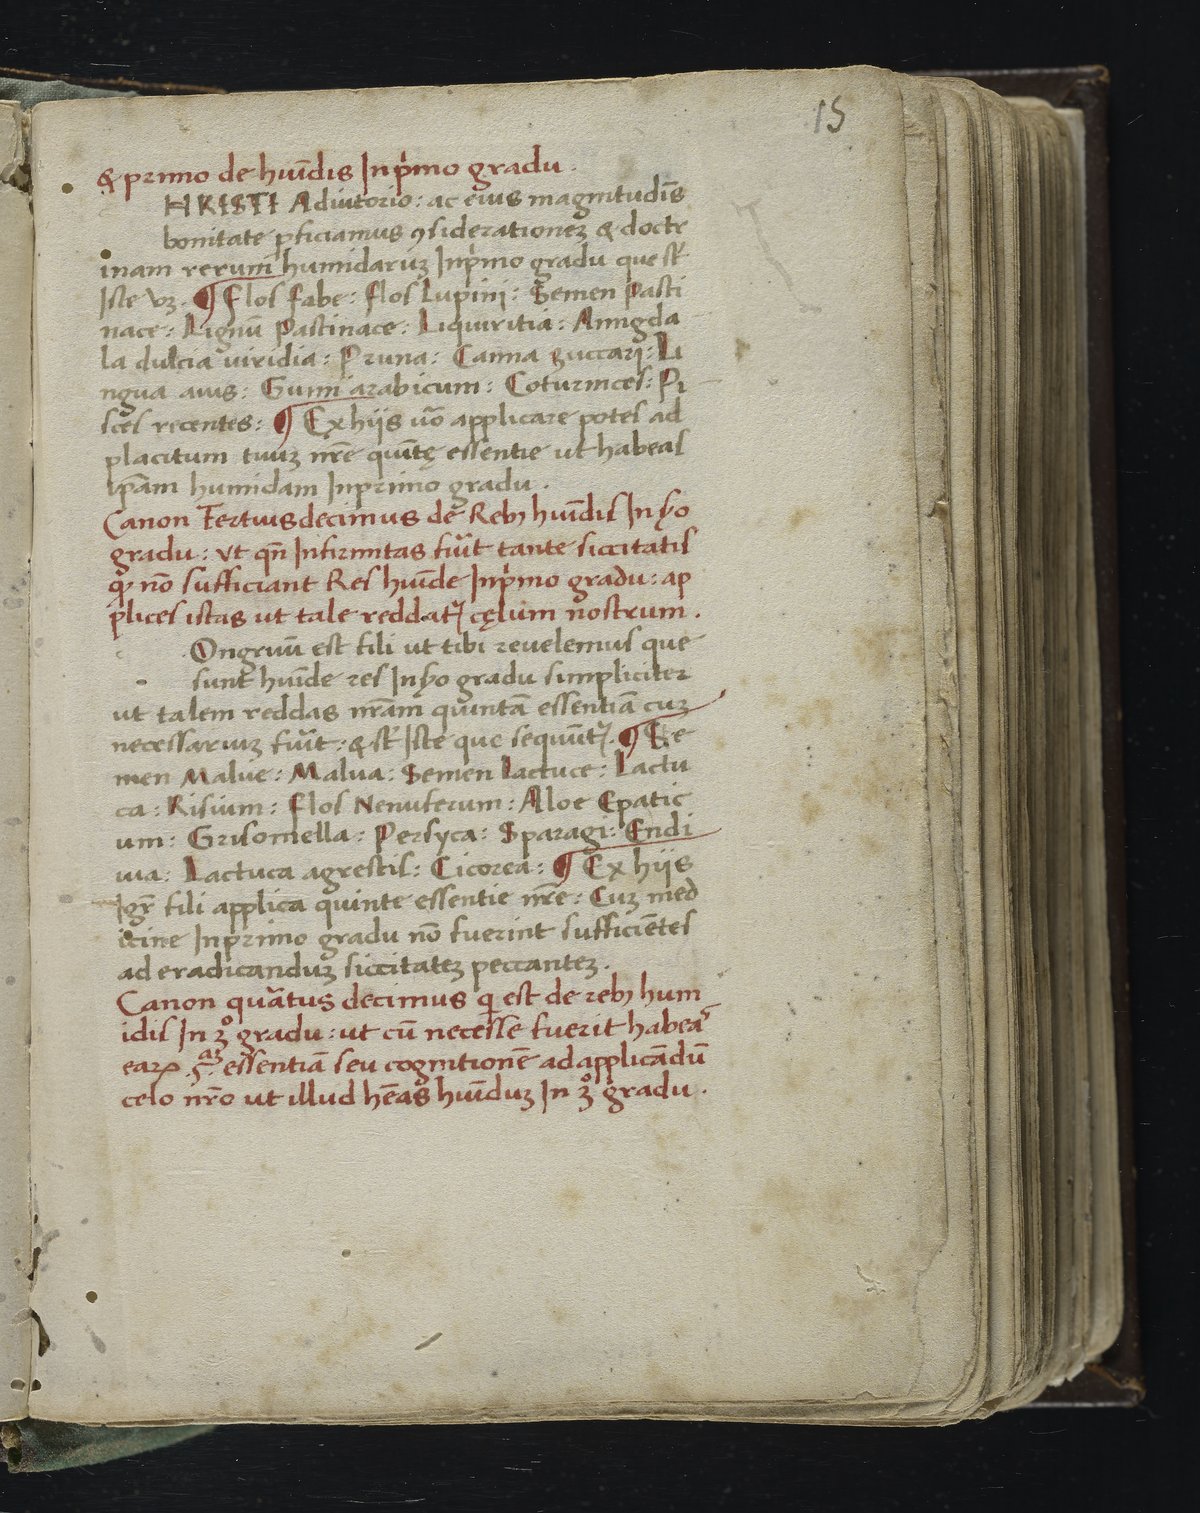 15
& primo de hūidis Inpͥmo gradu.
HRISTI Adiutorio: ac eius magnitudīs
bonitate ꝑficiamus ꝯsiderationeꝫ & doctr
inam rerum humidaruꝫ Inpͥmo gradu que st̄
Iste vꝫ. ¶ flos fabe: flos Lupini: Semen Pasti
nace: Lignū Pastinace: Liquiritia: Amigda
la dulcia viridia: Pruna: Canna zuccari: Li
ngua auis: Gumi arabicum: Coturnices: Pi
sces recentes: ¶ Ex hijs uō applicare potes ad
placitum tuuꝫ nr̄e quītę essentie ut habeas
ip̄am humidam Inprimo gradu.
Canon Tertiusdecimus de Rebꝫ hūidis In ẜo
gradu: vt qn̄ Infirmitas fūit tante siccitatis
ꝙ nō sufficiant Res hūide Inpͥmo gradu: ap
plices istas ut tale reddatᷣ cęlum nostrum.
Ongruū est fili ut tibi reuelemus que
sunt hūide res In ẜo gradu simpliciter
ut talem reddas nr̄am quintā essentiā cuꝫ
necessariuꝫ fūit: & st̄ Iste que sequūtᷣ. ¶ Se
men Malue: Malua: Semen Lactuce: Lactu
ca: Risium: flos Nenuferum: Aloe Epatic
um: Grisomella: Persyca: Sparagi: Endi
uia: Lactuca agrestis: Cicorea: ¶ Ex hijs
Igr̄ fili applica quinte essentie nr̄e: Cuꝫ med
icine Inprimo gradu nō fuerint sufficiētes
ad eradicanduꝫ siccitateꝫ peccanteꝫ.
Canon quātus decimus qͥ est de rebꝫ hum
idis In 3º gradu: ut cū necesse fuerit habeas
earꝝ 5ᵃᵐ essentiā seu cognitionē ad applicādū
celo nr̄o ut illud hēas hūiduꝫ In 3º gradu.